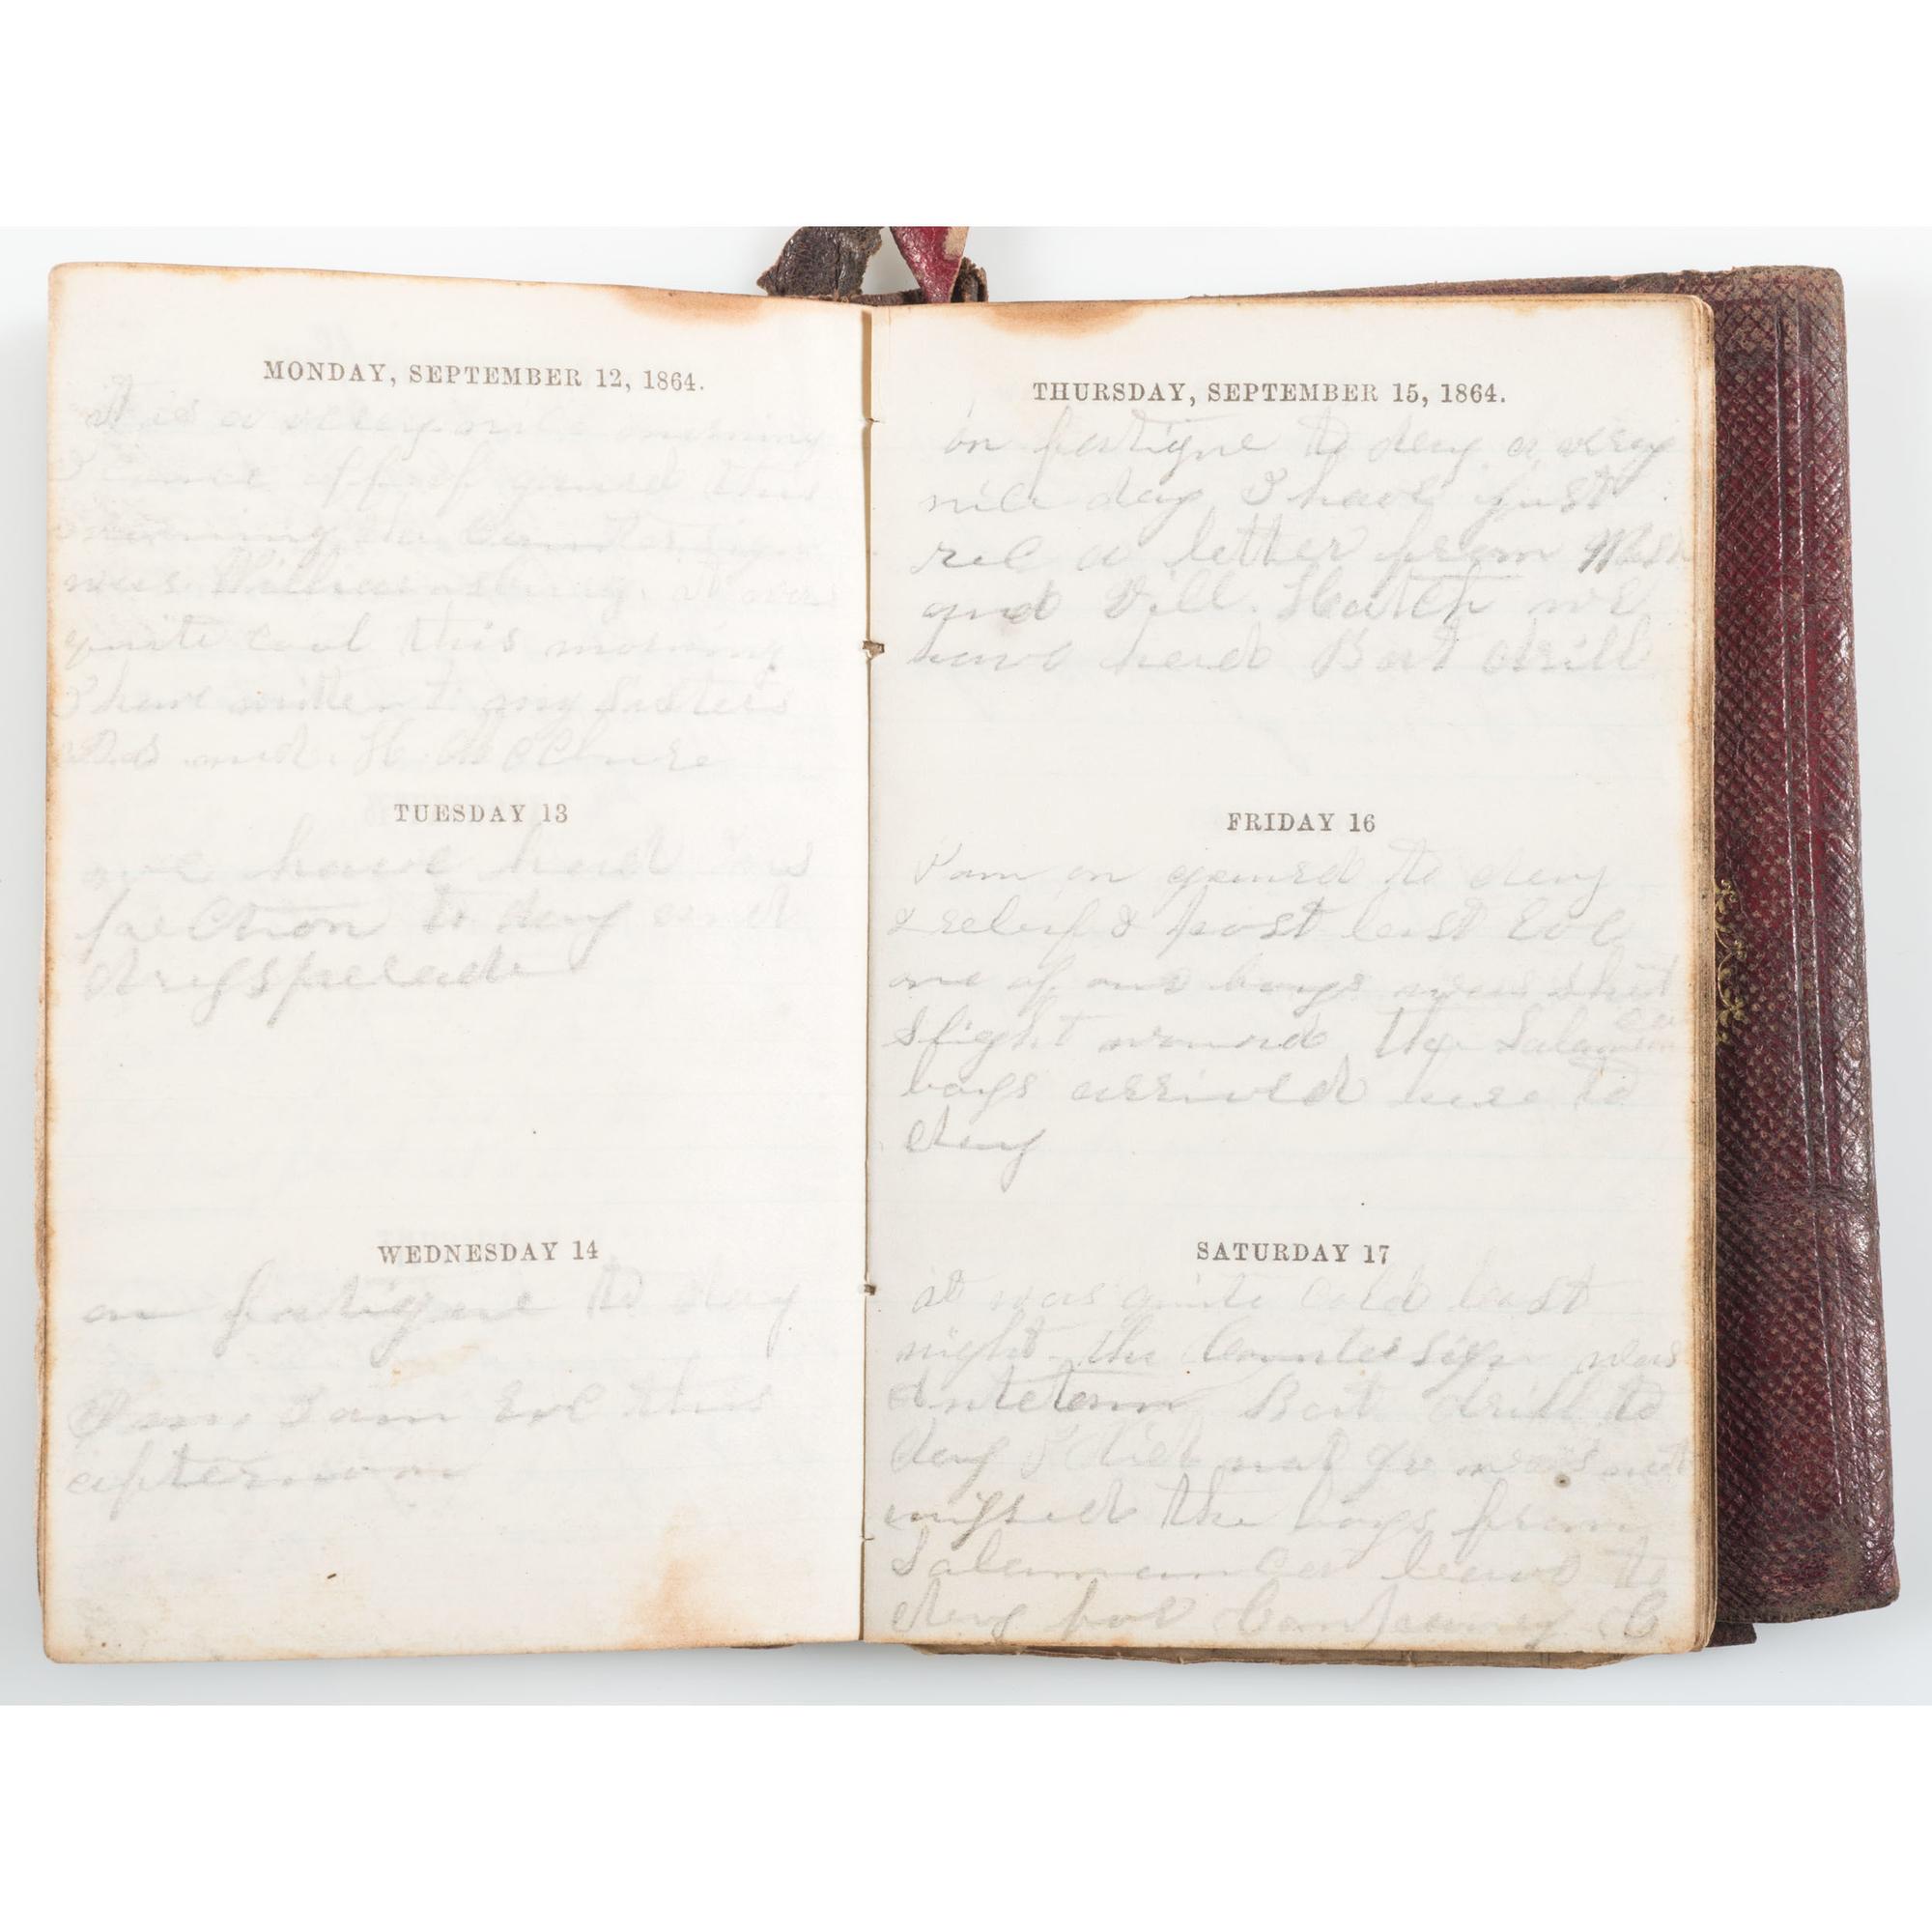 MONDAY, SEPTEMBER 12, 1864.
it is a very nice morning
I came off of guard this
morning the Countersign
was Williamsburg. it was
quite cool this morning
I have writen to my Sisters
and H. McClure
TUESDAY 13
we have had ins
pection to day and
dressperade
WEDNESDAY 14
on fatigue to day
I am this
afternoon
THURSDAY, SEPTEMBER 15, 1864.
on fatigue to day a very
nice day I have just
rec a letter from
and Dill. Hatch we
have had Bat drill
FRIDAY 16
I am on guard to day
& relief & post last Eve
one of our boys was shot
slight wound the Salamanca
boys arrived here to
day
SATURDAY 17
it was quite cold last
night the Countersign was
Antetam Bat drill to
day I did not go was not
missed the boys from
Salamanca leave to
day for C